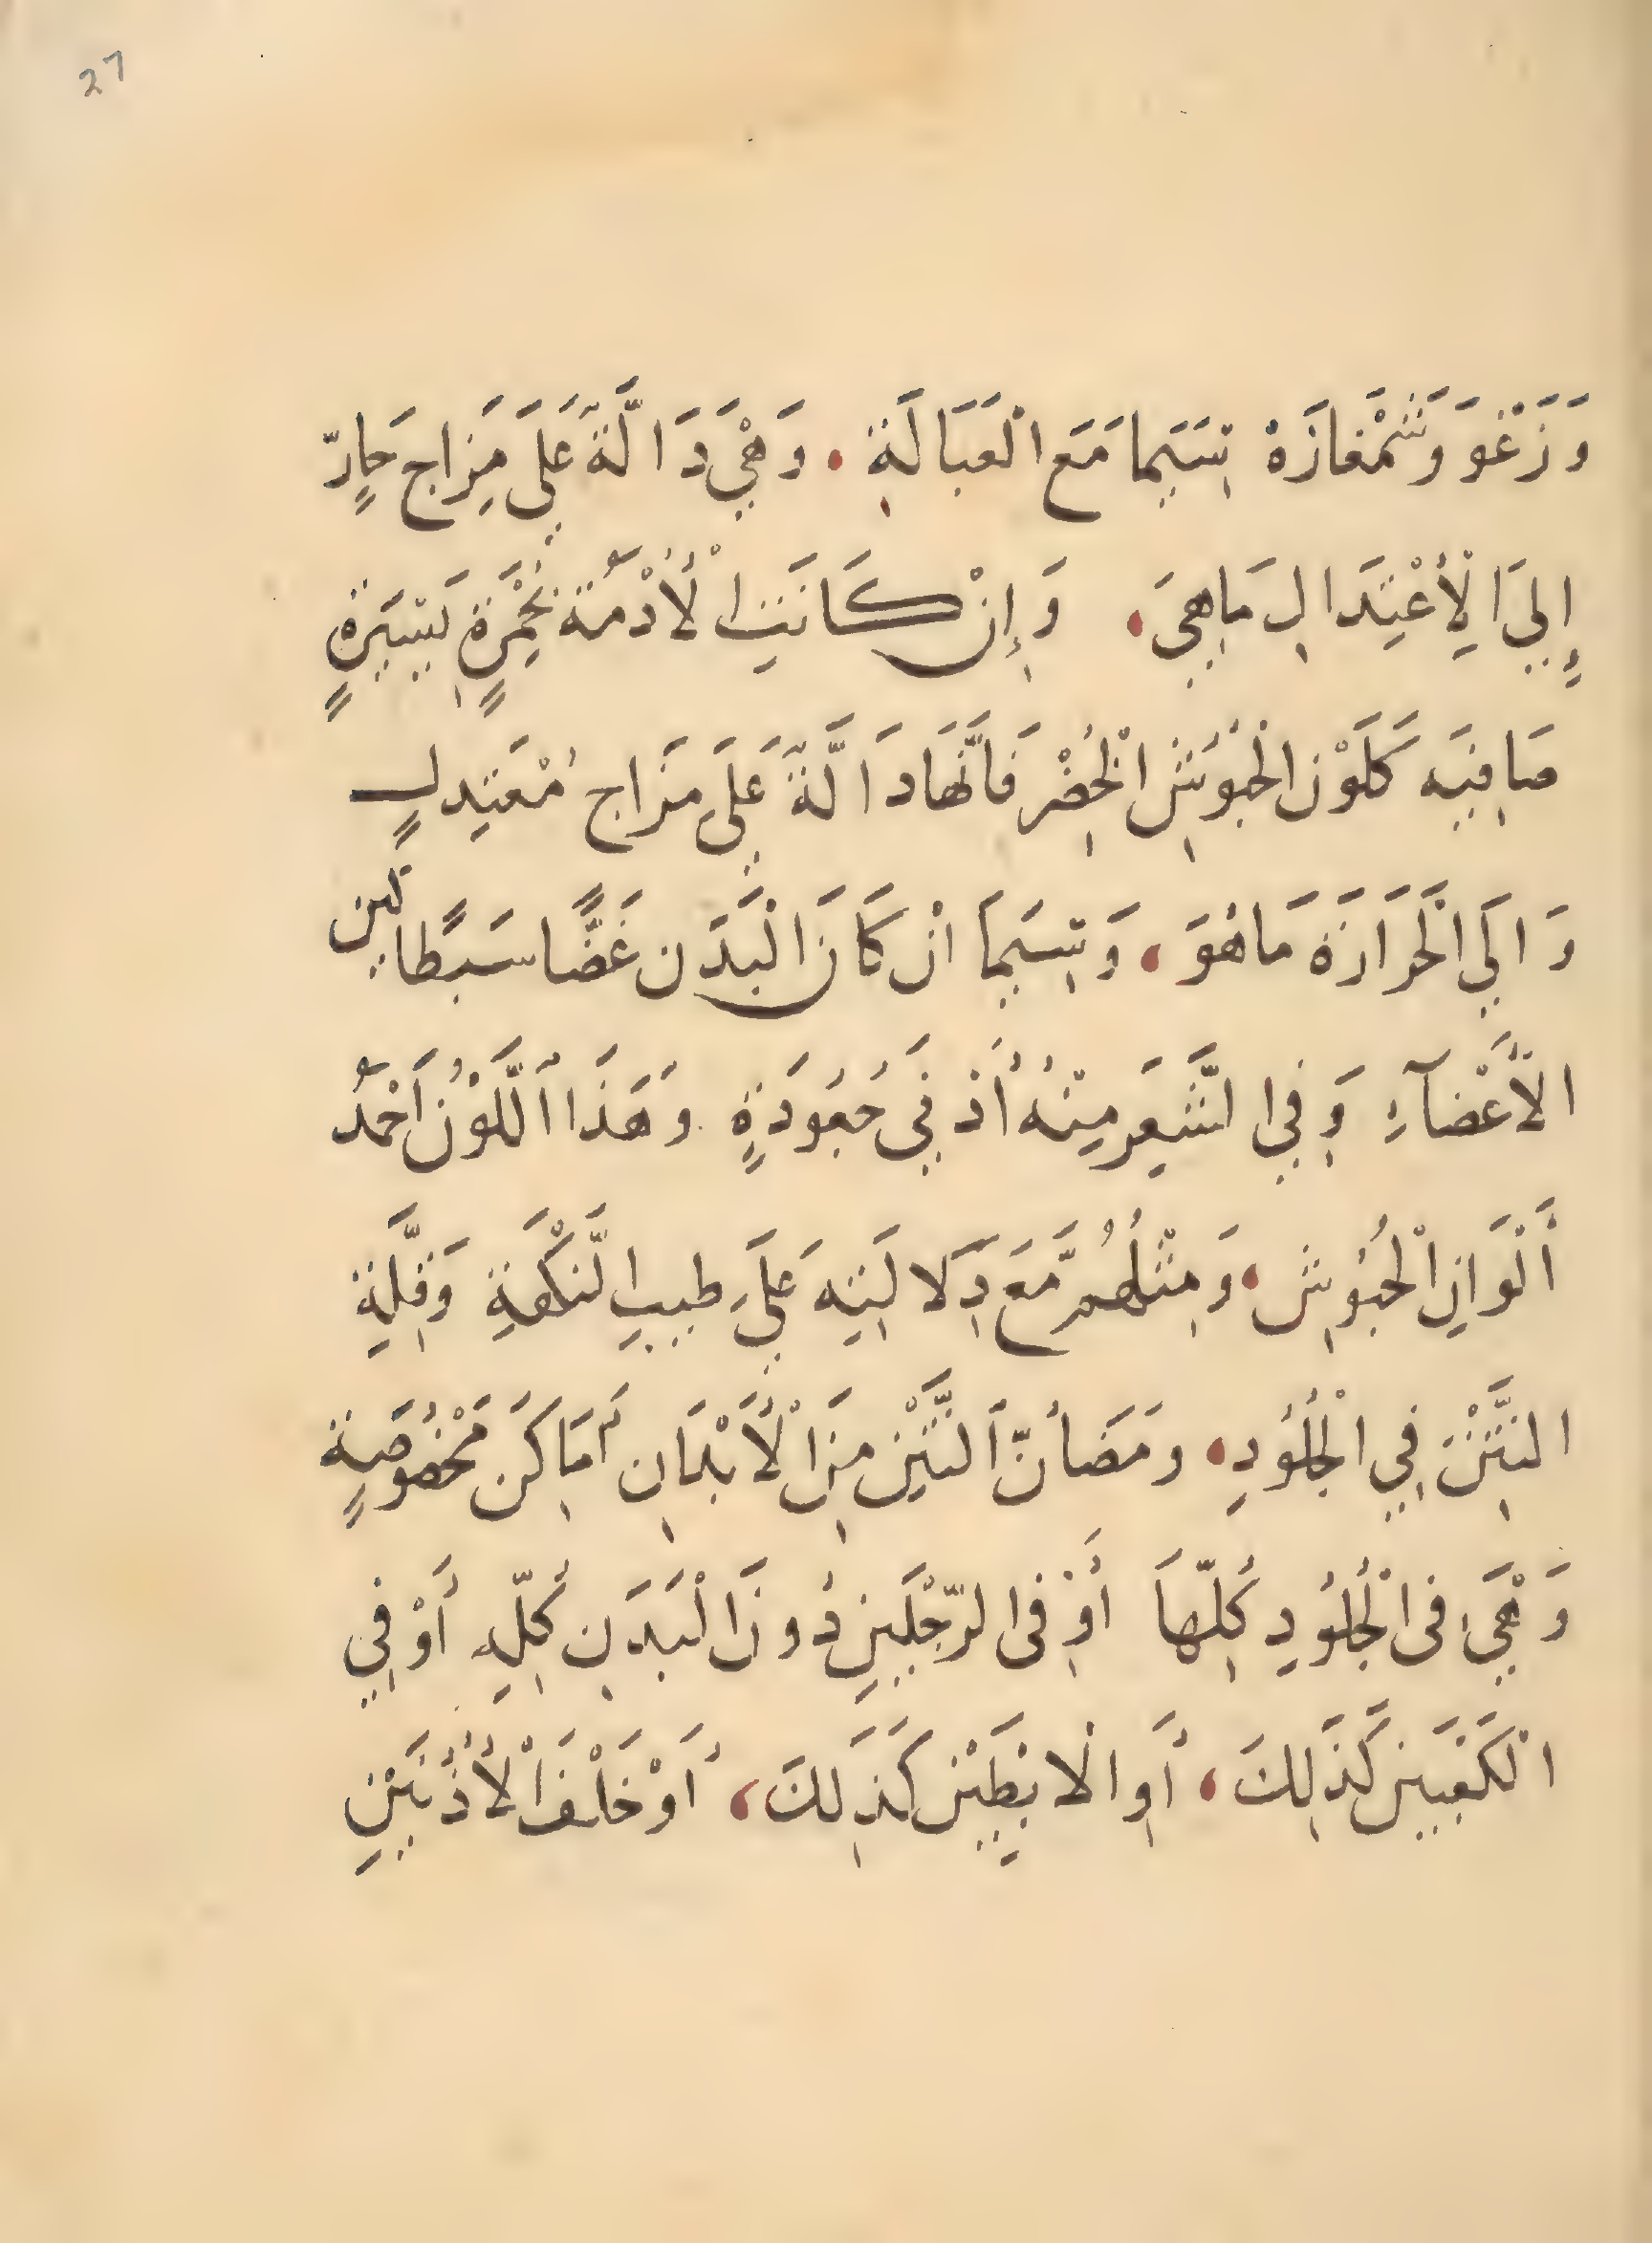 27
وَزَغْوَ وَشَمْغَازَة سِيَّمَا مَعَ الْعَبَالَةِ . وَهْيَ دَالَّةٌ عَلَى مِزَاجٍ حَارٍّ
إِلَى الْأِعْتِدَالِ مَاهِيَ . وَإِنْ كَانَتِ الْأُدْمَةُ بِحُمْرَةٍ يَسِيرَةٍ
صَافِيَه كَلَوْنِ الحُبُوشِ الْخُضْرِ فَأَنَّهَا دَالَّةٌ عَلَى مَزَاجٍ مُعْتَدِلٍ
وَالَى الْحَرَارَة مَا هُوَ ، وَسِيَّمَا انْ كَانَ الْبَدَن غَضًّا سَبطًا لَين
الأَعْضَآءِ وَفِي الشَّعَرِ مِنْهُ أَدْنَى جُعُودَةٍ . وَهَذَا اللَّوْنُ أَحْمَدُ
أَلْوَانِ الْحُبُوشِ ، وَمِثْلُهُم مَّعَ دَلَالَتِهِ عَلَى طيبِ النَّكْهَةِ وَقِلَّةِ
النَّتْنِ فِي الْجُلُودِ . وَمَضَأنّ النَّتْنِ مِنَ الْأَبْدَانِ أَمَاكِن مَخْصُوصَةٍ
وَهْيَ فى الْجُلُودِ كُلِّهَا أَوْ فى الرِّجْلَيْنِ دُونَ الْبَدَنِ كُلِّهِ أَوْ فِي
الْكَفَّيْنِ كَذَلِكَ ، أَوِ الْابِطَيْنِ كَذَلِكَ ، أَوْ خَلْفَ الْأُذُنَيْنِ